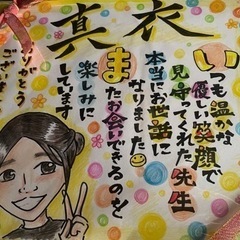 真衣
いつも温かな
優しい笑顔で
見守ってくれた先生
本当にお世話に
なりました
またお会いできるのを
楽しみに
しています
ありがとう
ございま